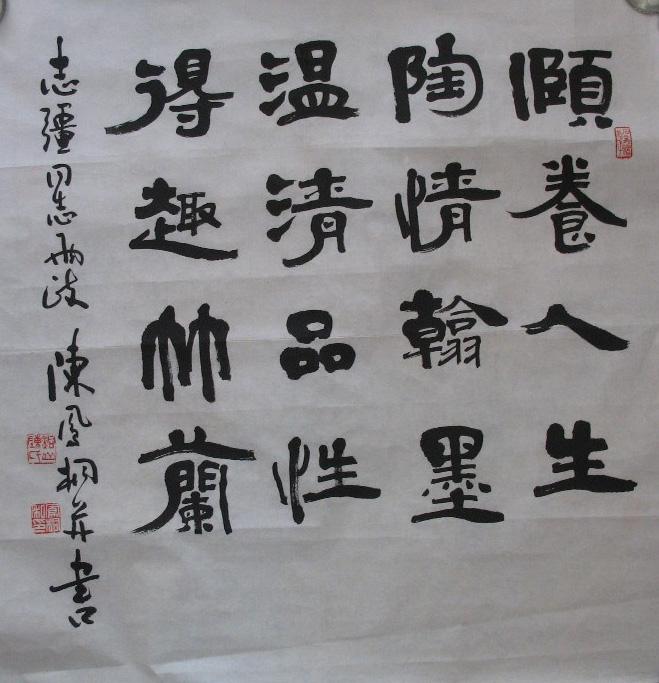 頤養人生
陶情翰墨
温清品性
得趣竹蘭
志疆同志雨政 陳鳳桐并書